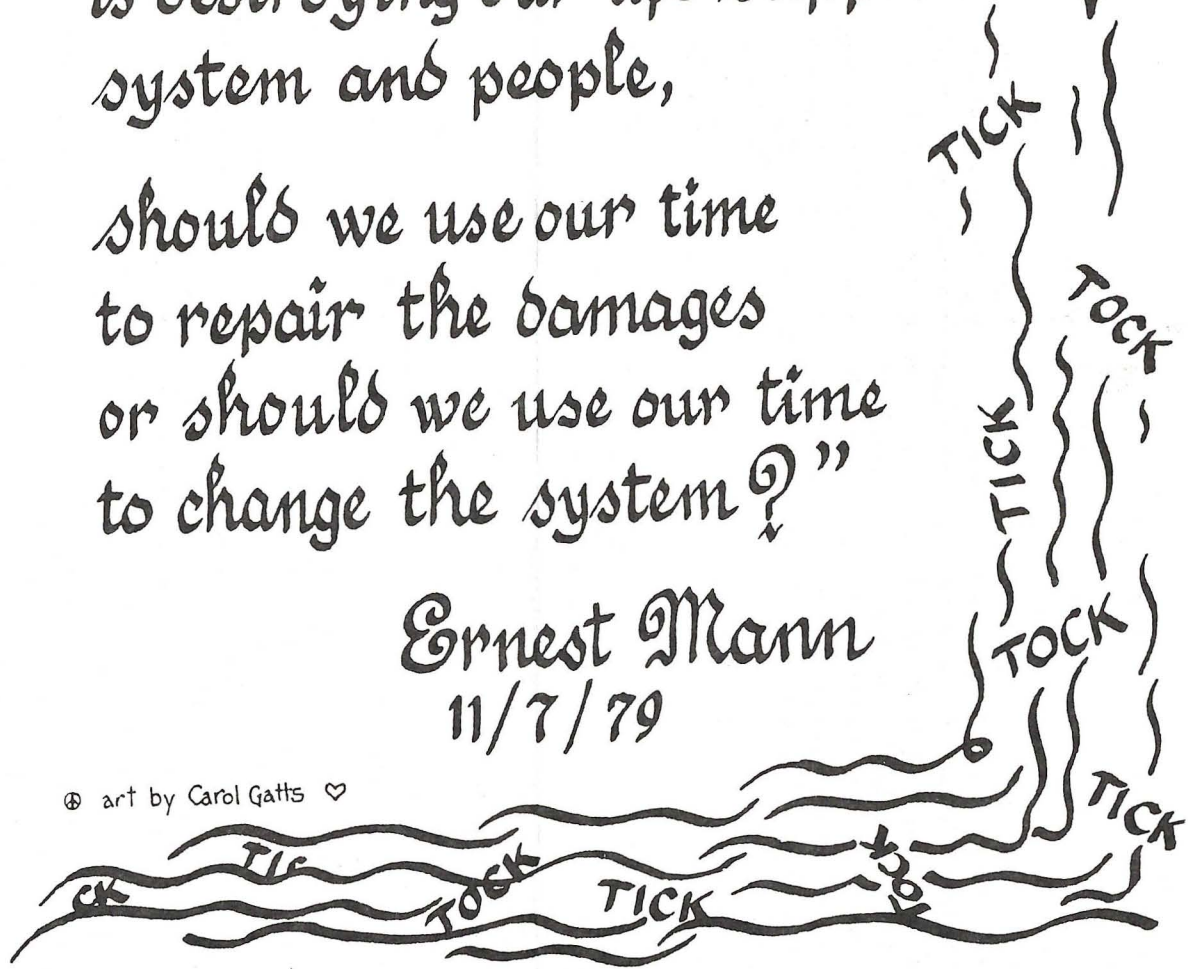 is destroying our
system and people,
should we use our time
to repair the damages
or should we use our time
to change the system?”
Ernest Mann
11/7/79
art by Carol Gatts
TICK
TOCK
TICK
TOCK
TICK
TOCK
TICK
TOCK
TIC
CK